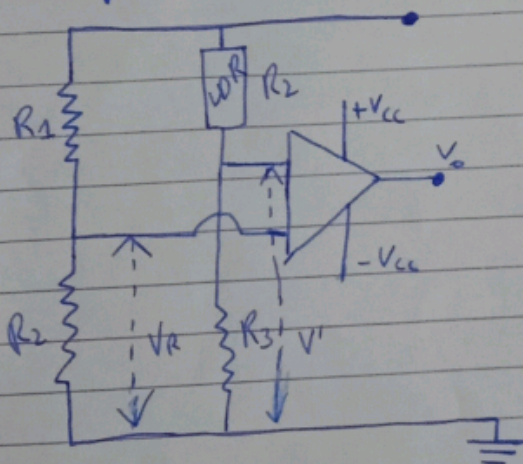 R1
LDR
R2
+Vcc
Vo
-Vcc
R2
VR
R3
V'